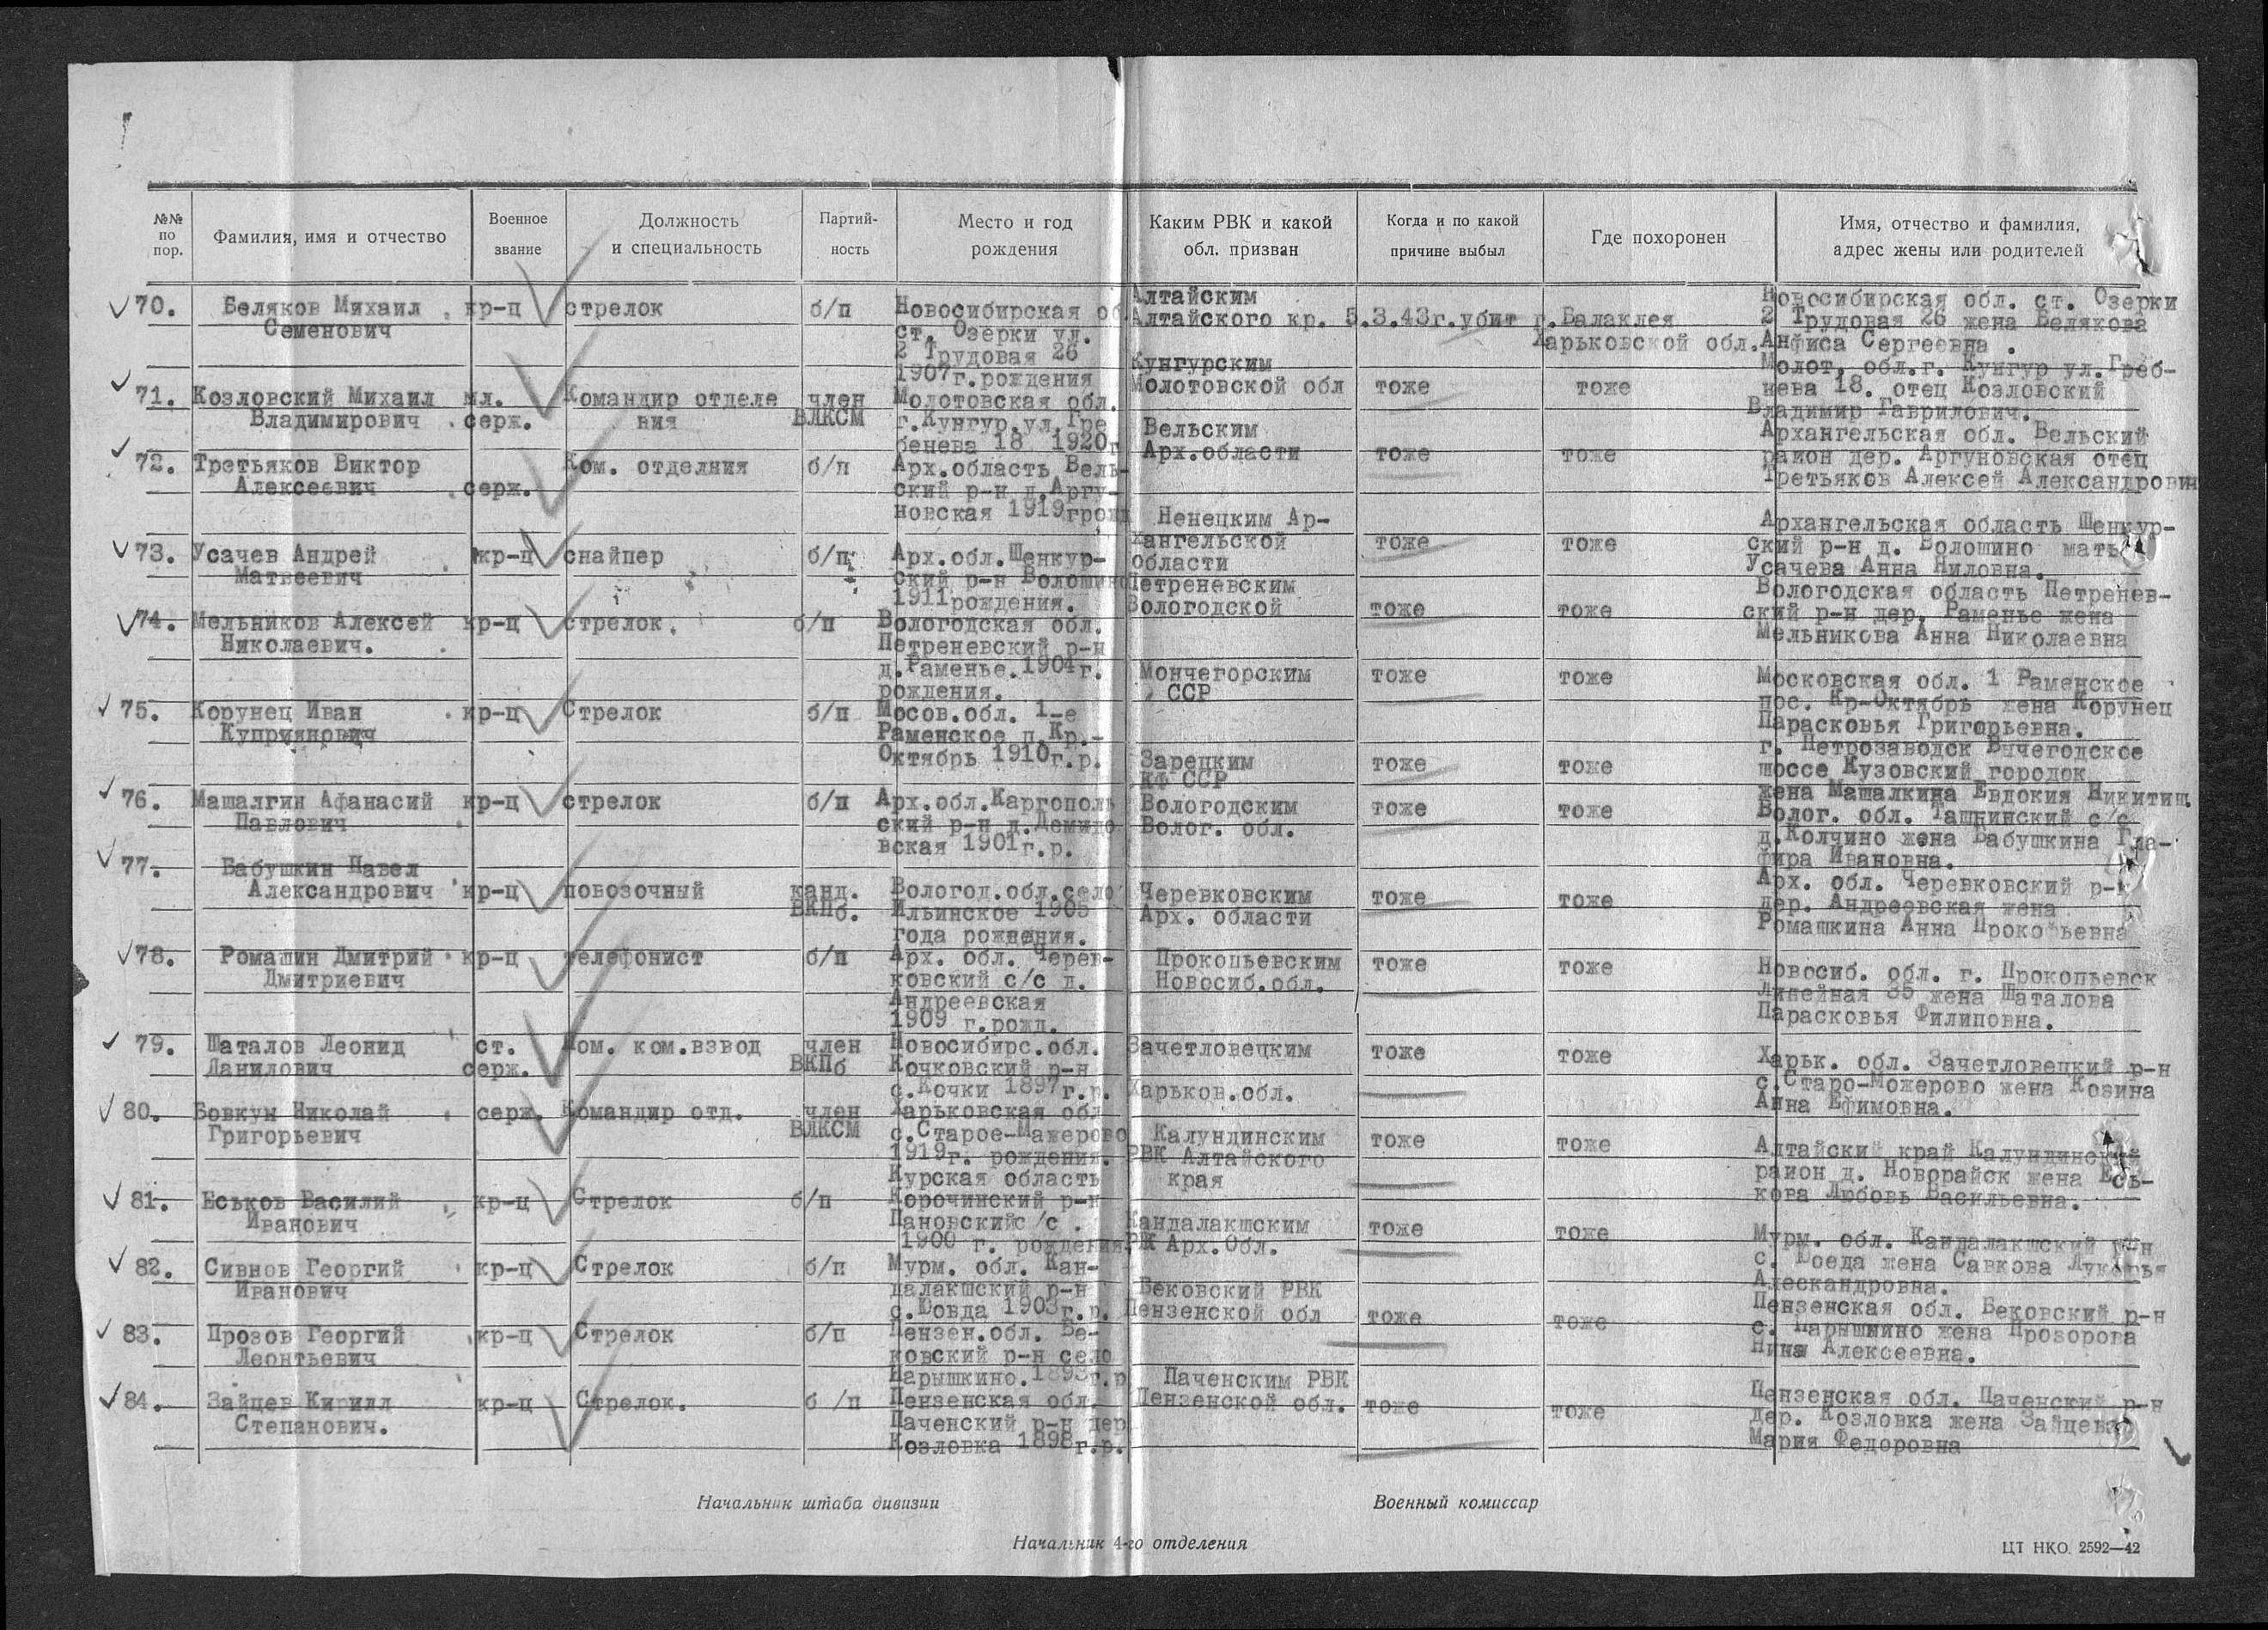 №№ по пор.
Фамилия, имя и отчество
Военное звание
Должность и специальность
Партий-ность
Место и год рождения
Каким РВК и какой обл. призван
Когда и по какой причине выбыл
Где похоронен
Имя, отчество и фамилия, адрес жены или родителей
70. Беляков Михаил Семенович
кр-ц
стрелок
б/п
Новосибирская об
ст. Озерки ул.
2 Трудовая 26
1907г.рождения
Алтайским
Алтайского кр.
5.3.43г.убит
г.Балаклея
Харьковской обл.
Новосибирская обл. ст. Озерки
2 Трудовая 26 жена Белякова
Анфиса Сергеевна .
71. Козловский Михаил
Владимирович
мл.
серж.
Командир отделе
ния
член
ВЛКСМ
Молотовская обл.
г.Кунгур.ул.Гре
бенева 18 1920г
Кунгурским
Молотовской обл
тоже
тоже
Молот. обл.г. Кунгур ул.Греб-
нева 18. отец Козловский
Владимир Гаврилович.
72. Третьяков Виктор
Алексеевич
серж.
Ком. отделния
б/п
Арх.область Вель-
ский р-н д.Аргу-
новская 1919грожд
Вельским
Арх.области
тоже
тоже
Архангельская обл. Вельский
район дер. Аргуновская отец
Третьяков Алексей Александрович
73. Усачев Андрей
Матвеевич
кр-ц
снайпер
б/п
Арх.обл.Шенкур-
ский р-н Волошино
1911рождения.
Ненецким Ар-
хангельской
области
тоже
тоже
Архангельская область Шенкур-
ский р-н д. Волошино мать
Усачева Анна Ниловна.
74. Мельников Алексей
Николаевич.
кр-ц
стрелок.
б/п
Вологодская обл.
Петреневский р-н
д.Раменье.1904г.
рождения.
Петреневским
Вологодской
тоже
тоже
Вологодская область Петренев-
ский р-н дер. Раменье жена
Мельникова Анна Николаевна
75. Корунец Иван
Куприянович
кр-ц
Стрелок
б/п
Мосов.обл. 1-е
Раменское п.Кр.-
Октябрь 1910г.р.
Мончегорским
ССР
тоже
тоже
Московская обл. 1 Раменское
пос. Кр-Октябрь жена Корунец
Парасковья Григорьевна.
76. Машалгин Афанасий
Павлович
кр-ц
стрелок
б/п
Арх.обл.Каргополь
ский р-н д.Демидо
вская 1901г.р.
Зарецким
КФ ССР
тоже
тоже
г. Петрозаводск Вычегодское
шоссе Кузовский городок
жена Машалкина Евдокия Никитиш
77. Бабушкин Павел
Александрович
кр-ц
повозочный
канд.
ВКПб.
Вологод.обл.село
Ильинское 1905
года рождения.
Вологодским
Волог. обл.
тоже
тоже
Волог. обл. Ташнинский с/с
д.Колчино жена Бабушкина Гла-
фира Ивановна.
78. Ромашин Дмитрий
Дмитриевич
кр-ц
телефонист
б/п
Арх. обл. Черев-
ковский с/с д.
Андреевская
1909 г.рожд.
Черевковским
Арх. области
тоже
тоже
Арх. обл. Черевковский р-н
дер. Андреевская жена
Ромашкина Анна Прокопьевна
79. Шаталов Леонид
Данилович
ст.
серж.
Пом. ком.взвод
член
ВКПб
Новосибирс.обл.
Кочковский р-н
с.Кочки 1897г.р.
Прокопьевским
Новосиб.обл.
тоже
тоже
Новосиб. обл. г. Прокопьевск
Линейная 85 жена Шаталова
Парасковья Филиповна.
80. Бовкун Николай
Григорьевич
серж.
Командир отд.
член
ВЛКСМ
Харьковская обл
с.Старое-Мажерово
1919г. рождения.
Зачетловецким
Харьков.обл.
тоже
тоже
Харьк. обл. Зачетловецкий р-н
с.Старо-Можерово жена Козина
Анна Ефимовна.
81. Еськов Василий
Иванович
кр-ц
Стрелок
б/п
Курская область
Корочинский р-н
Пановскийс/с .
1900 г. рождения.
Калундинским
РВК Алтайского
края
тоже
тоже
Алтайский край Калундинский
район д. Новорайск жена Есь-
кова Любовь Васильевна.
82. Сивнов Георгий
Иванович
кр-ц
Стрелок
б/п
Мурм. обл. Кан-
далакшский р-н
с.Ювда 1903г.р.
Кандалакшским
РЖ Арх.Обл.
тоже
тоже
Мурм. обл. Кандалакшский р-н
с. Юоеда жена Савкова Лукерья
Алескандровна.
83. Прозов Георгий
Леонтьевич
кр-ц
Стрелок
б/п
Пензен.обл. Бе-
ковский р-н село
Нарышкино.1893г.р
Бековский РВК
Пензенской обл
тоже
тоже
Пензенская обл. Бековский р-н
с. Нарышкино жена Прозорова
Нина Алексеевна.
84. Зайцев Кирилл
Степанович.
кр-ц
Стрелок.
б /п
Пензенская обл.
Паченский р-н дер
Козловка 1898г.р.
Паченским РВК
Пензенской обл.
тоже
тоже
Пензенская обл. Паченский р-н
дер. Козловка жена Зайцева
Мария Федоровна
Начальник штаба дивизии
Военный комиссар
Начальник 4-го отделения
ЦТ НКО. 2592—42